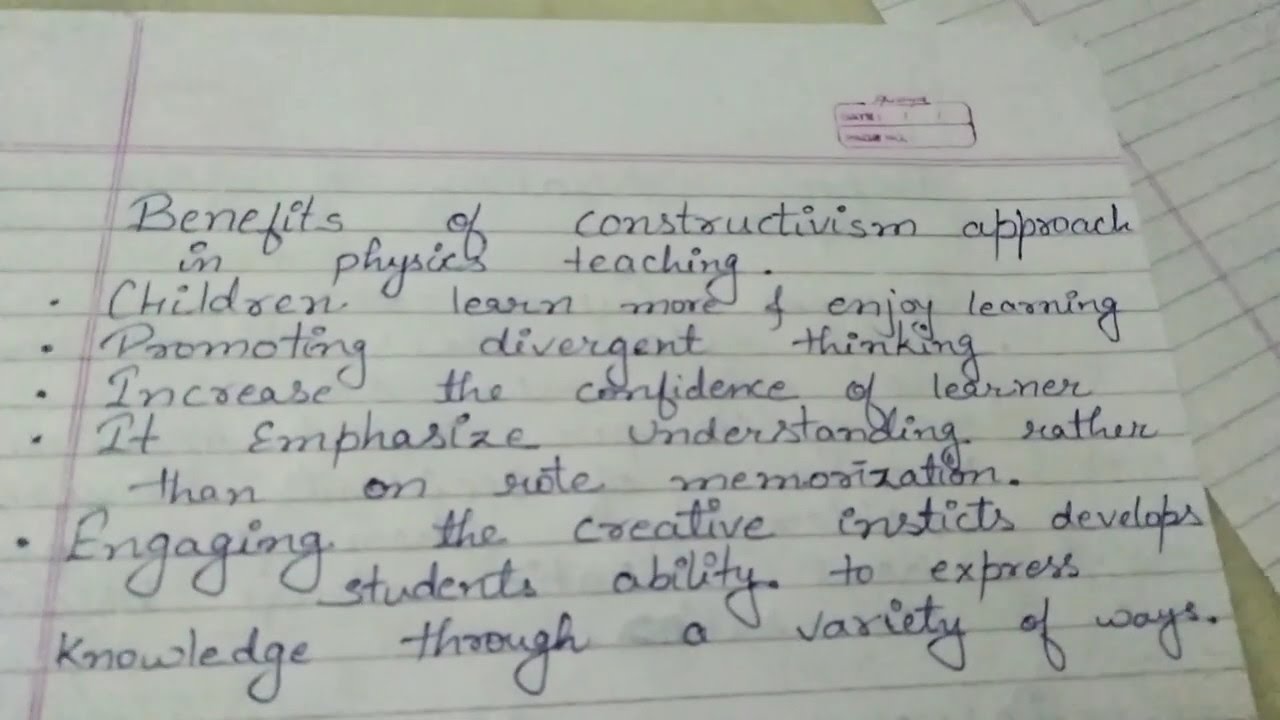 DATE:
Benefits of constructivism approach
in physics teaching.
• Children learn more & enjoy learning
• Promoting divergent thinking
• Increase the confidence of learner
• It Emphasize understanding rather
than on rote memorization.
• Engaging the creative insticts develops
students ability. to express
knowledge through a variety of ways.